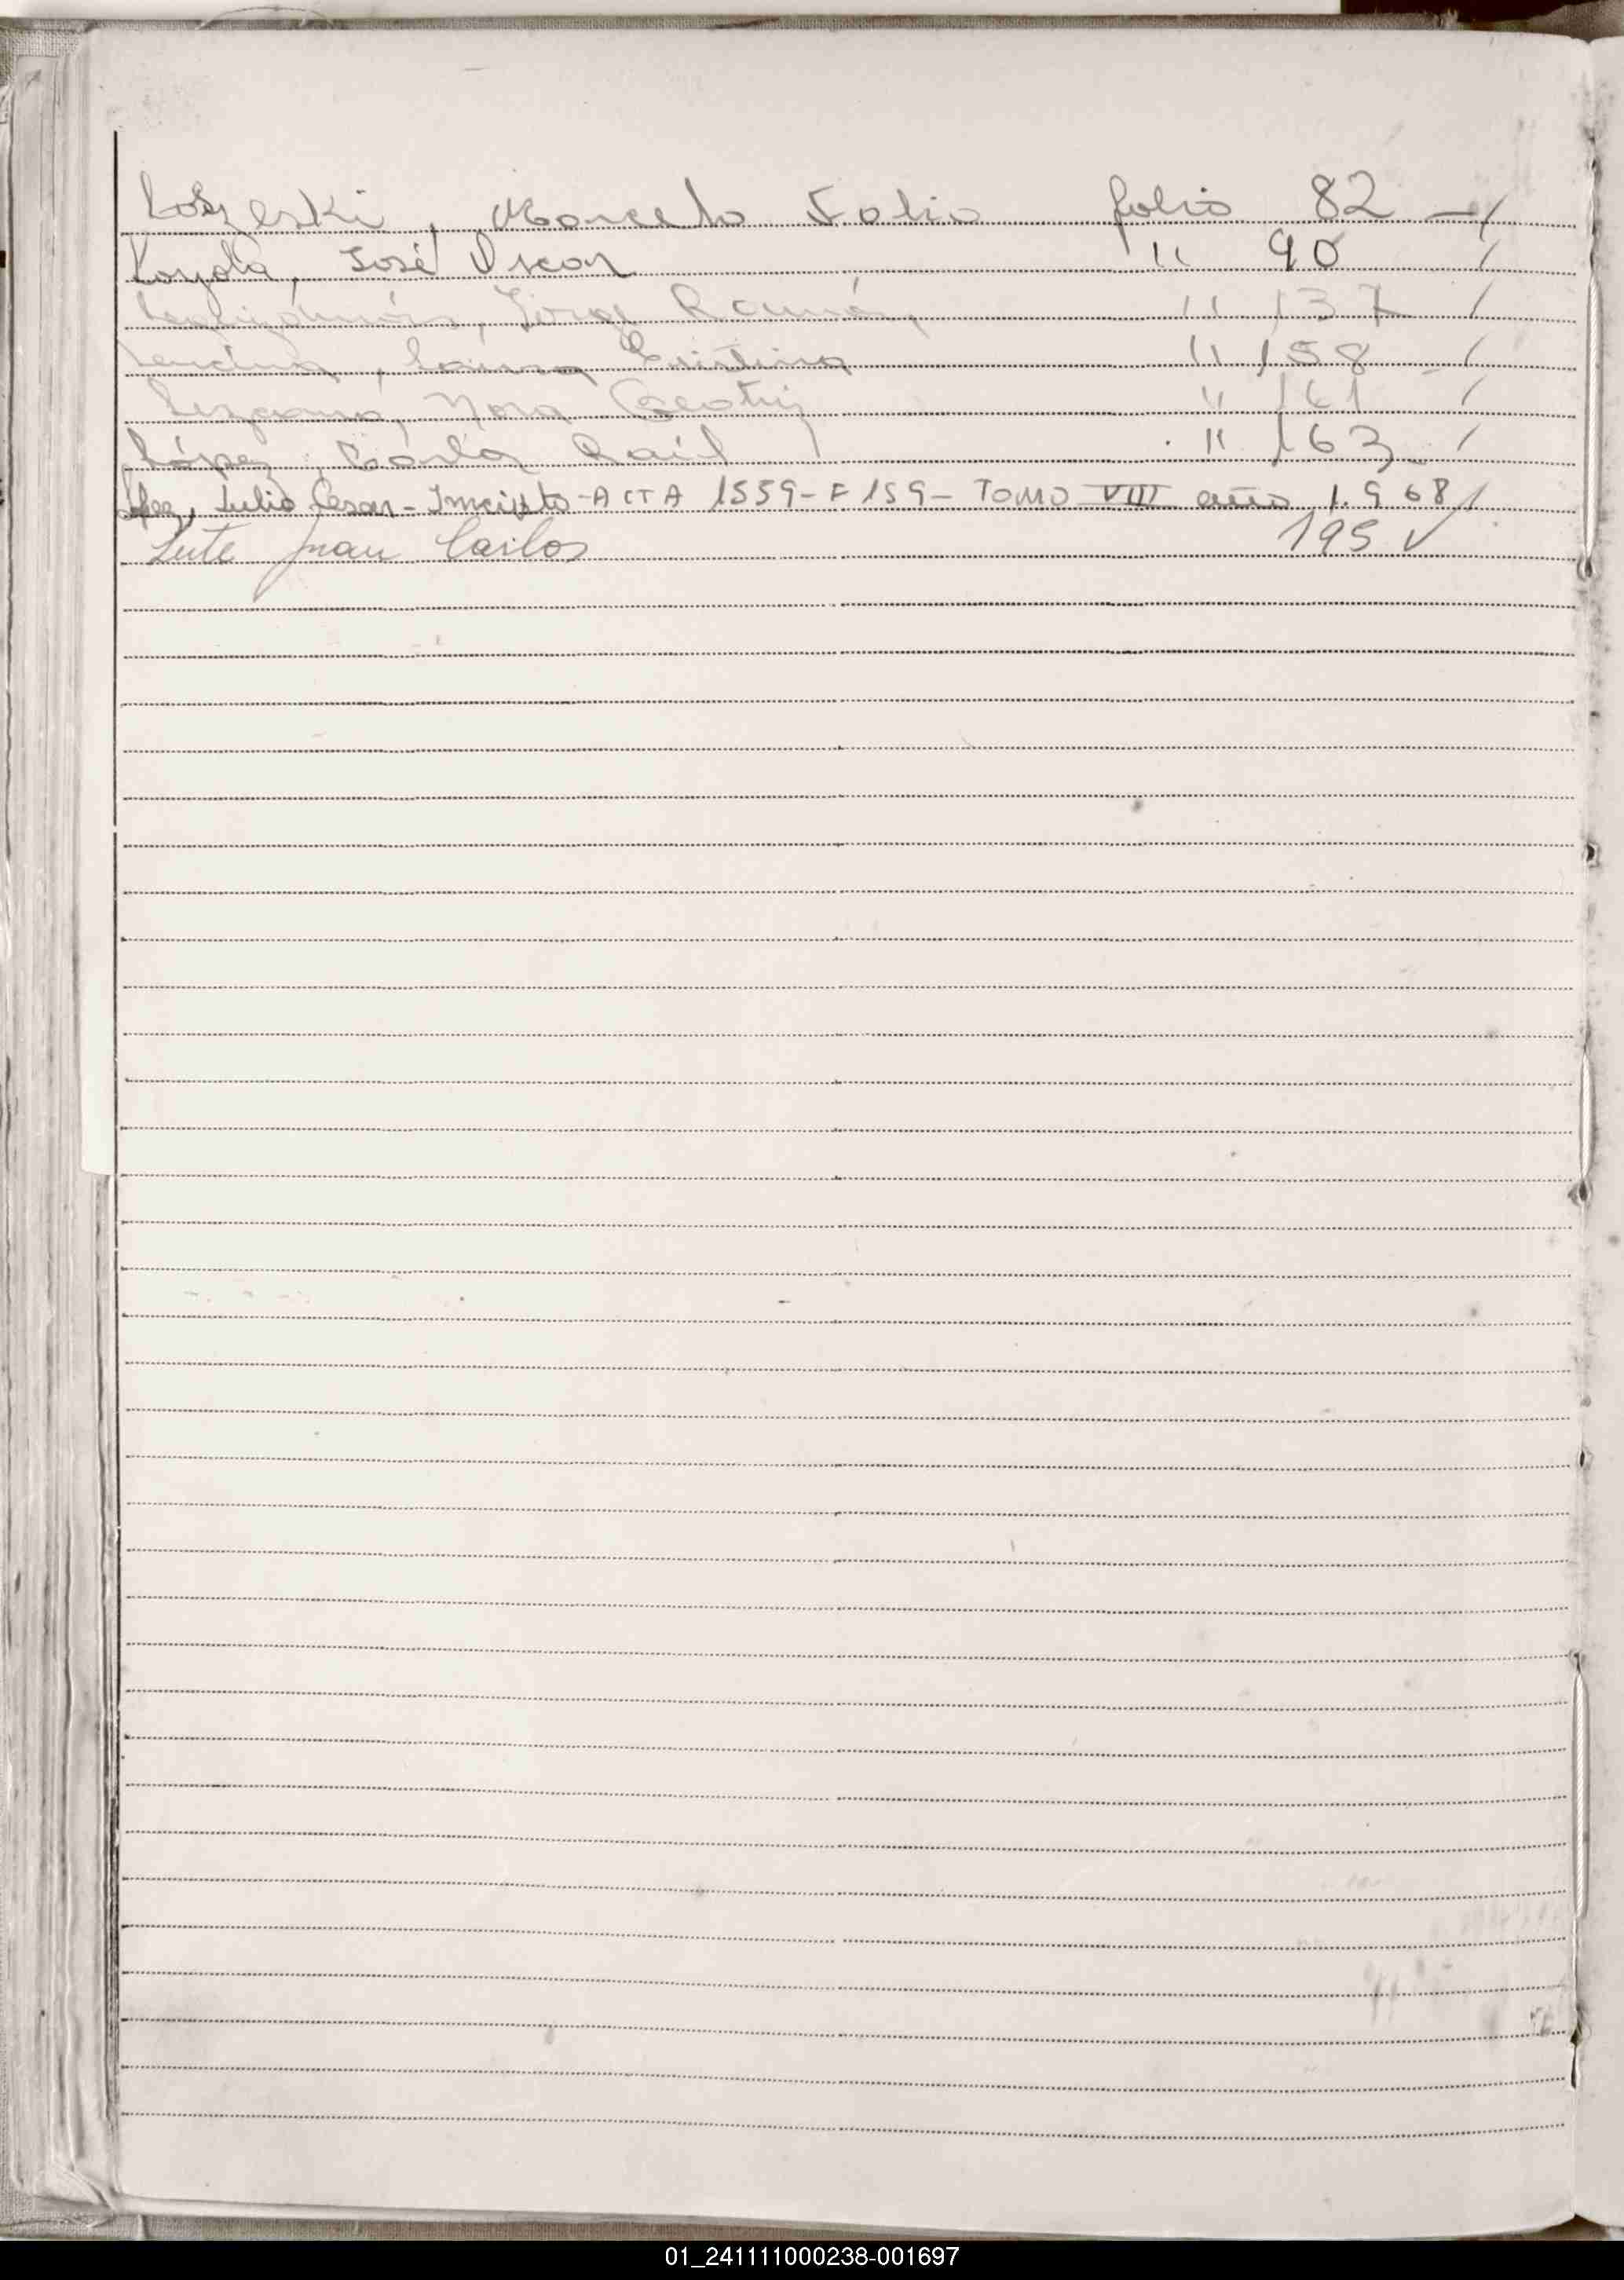 Loszeski, Marcelo Fabio folio 82 - /
Loyola, José Oscar " 90 /
Leguizamón, Jorge Ramón " 137 /
Lencina, Laura Cristina " 158 - /
Lezcano, Nora Beatriz " 161 /
López, Carlos Raúl " 163 - /
López, Julio Cesar - Inscripto - ACTA 1559 - F 159 - TOMO VIII año 1.968 /
Lute Juan Carlos 195 ✓
01_241111000238-001697